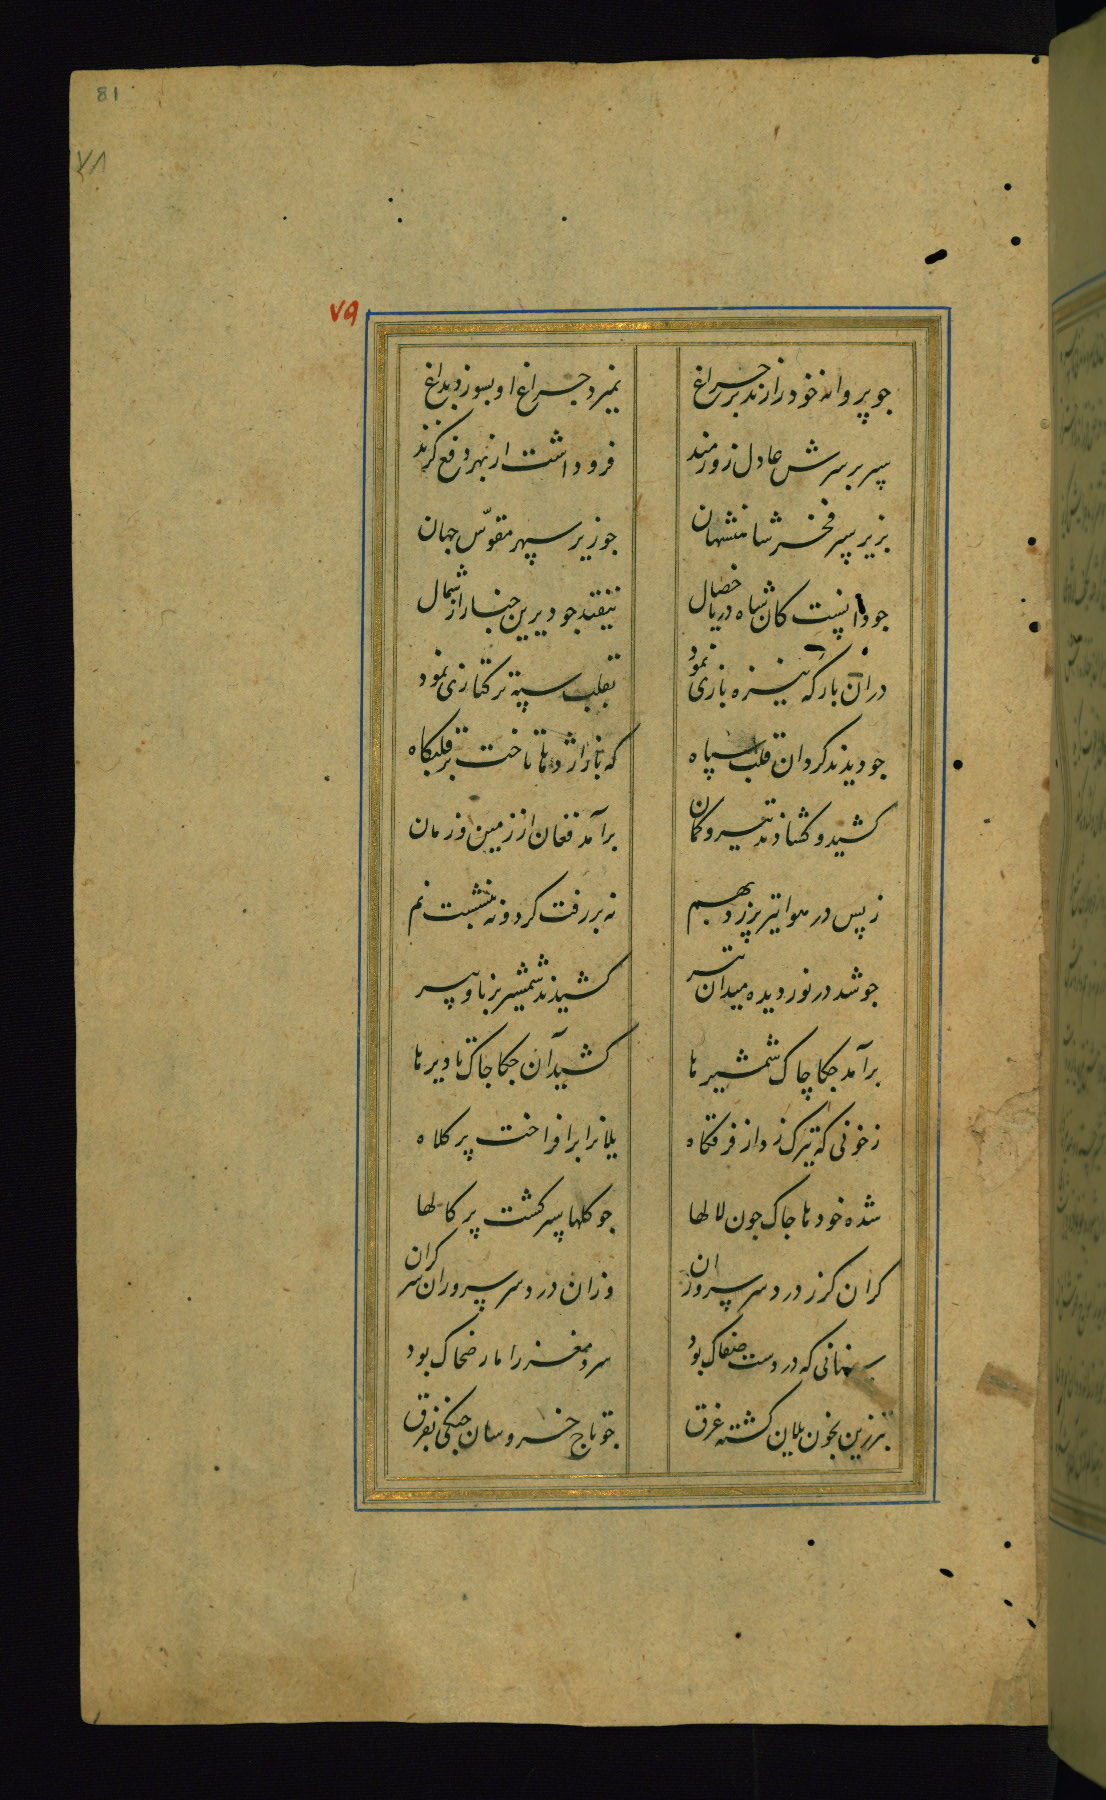 81
٧٨
٧٩
جو پروانه خود را زند بر چراغ
نمیرد چراغ او بسوزد بداغ
سپر بر سرش عادل زورمند
فرو داشت از بهر دفع گزند
بزیر سپر فخر شاهنشهان
جو زیر سپهر مقوّس جهان
جو دانست کان شاه دریا خصال
نیفتد جو دیرین جنار از شمال
دران بارکه نیزه بازی نمود
بقلب سپه ترکتازی نمود
جو دیدند کردان قلب سپاه
که باز اژدها تاخت بر قلبکاه
کشید و کشادند تیر و کمان
برآمد فغان از زمین و زمان
ز پس در هوا تیر پر زد بهم
نه بر رفت کرد و نه بنشست نم
جو شد در نوردیده میدان تیر
کشیدند شمشیر برنا و پیر
برآمد جکاچاک شمشیرها
کشید آن جکاجاک تا دیرها
ز خونی که تیرک زد از فرقکاه
یلانرا برافراخت پر کلاه
شده خودها جاک جون لالها
جو کلها سپر کشت پرکالها
کران کرز درد سر سروران
وزان درد سر سروران سر کران
سنانی که در دست ضحاک بود
سر و مغز را مار ضحاک بود
تبرزین بخون یلان کشته غرق
جو تاج خروسان جنکی بفرق